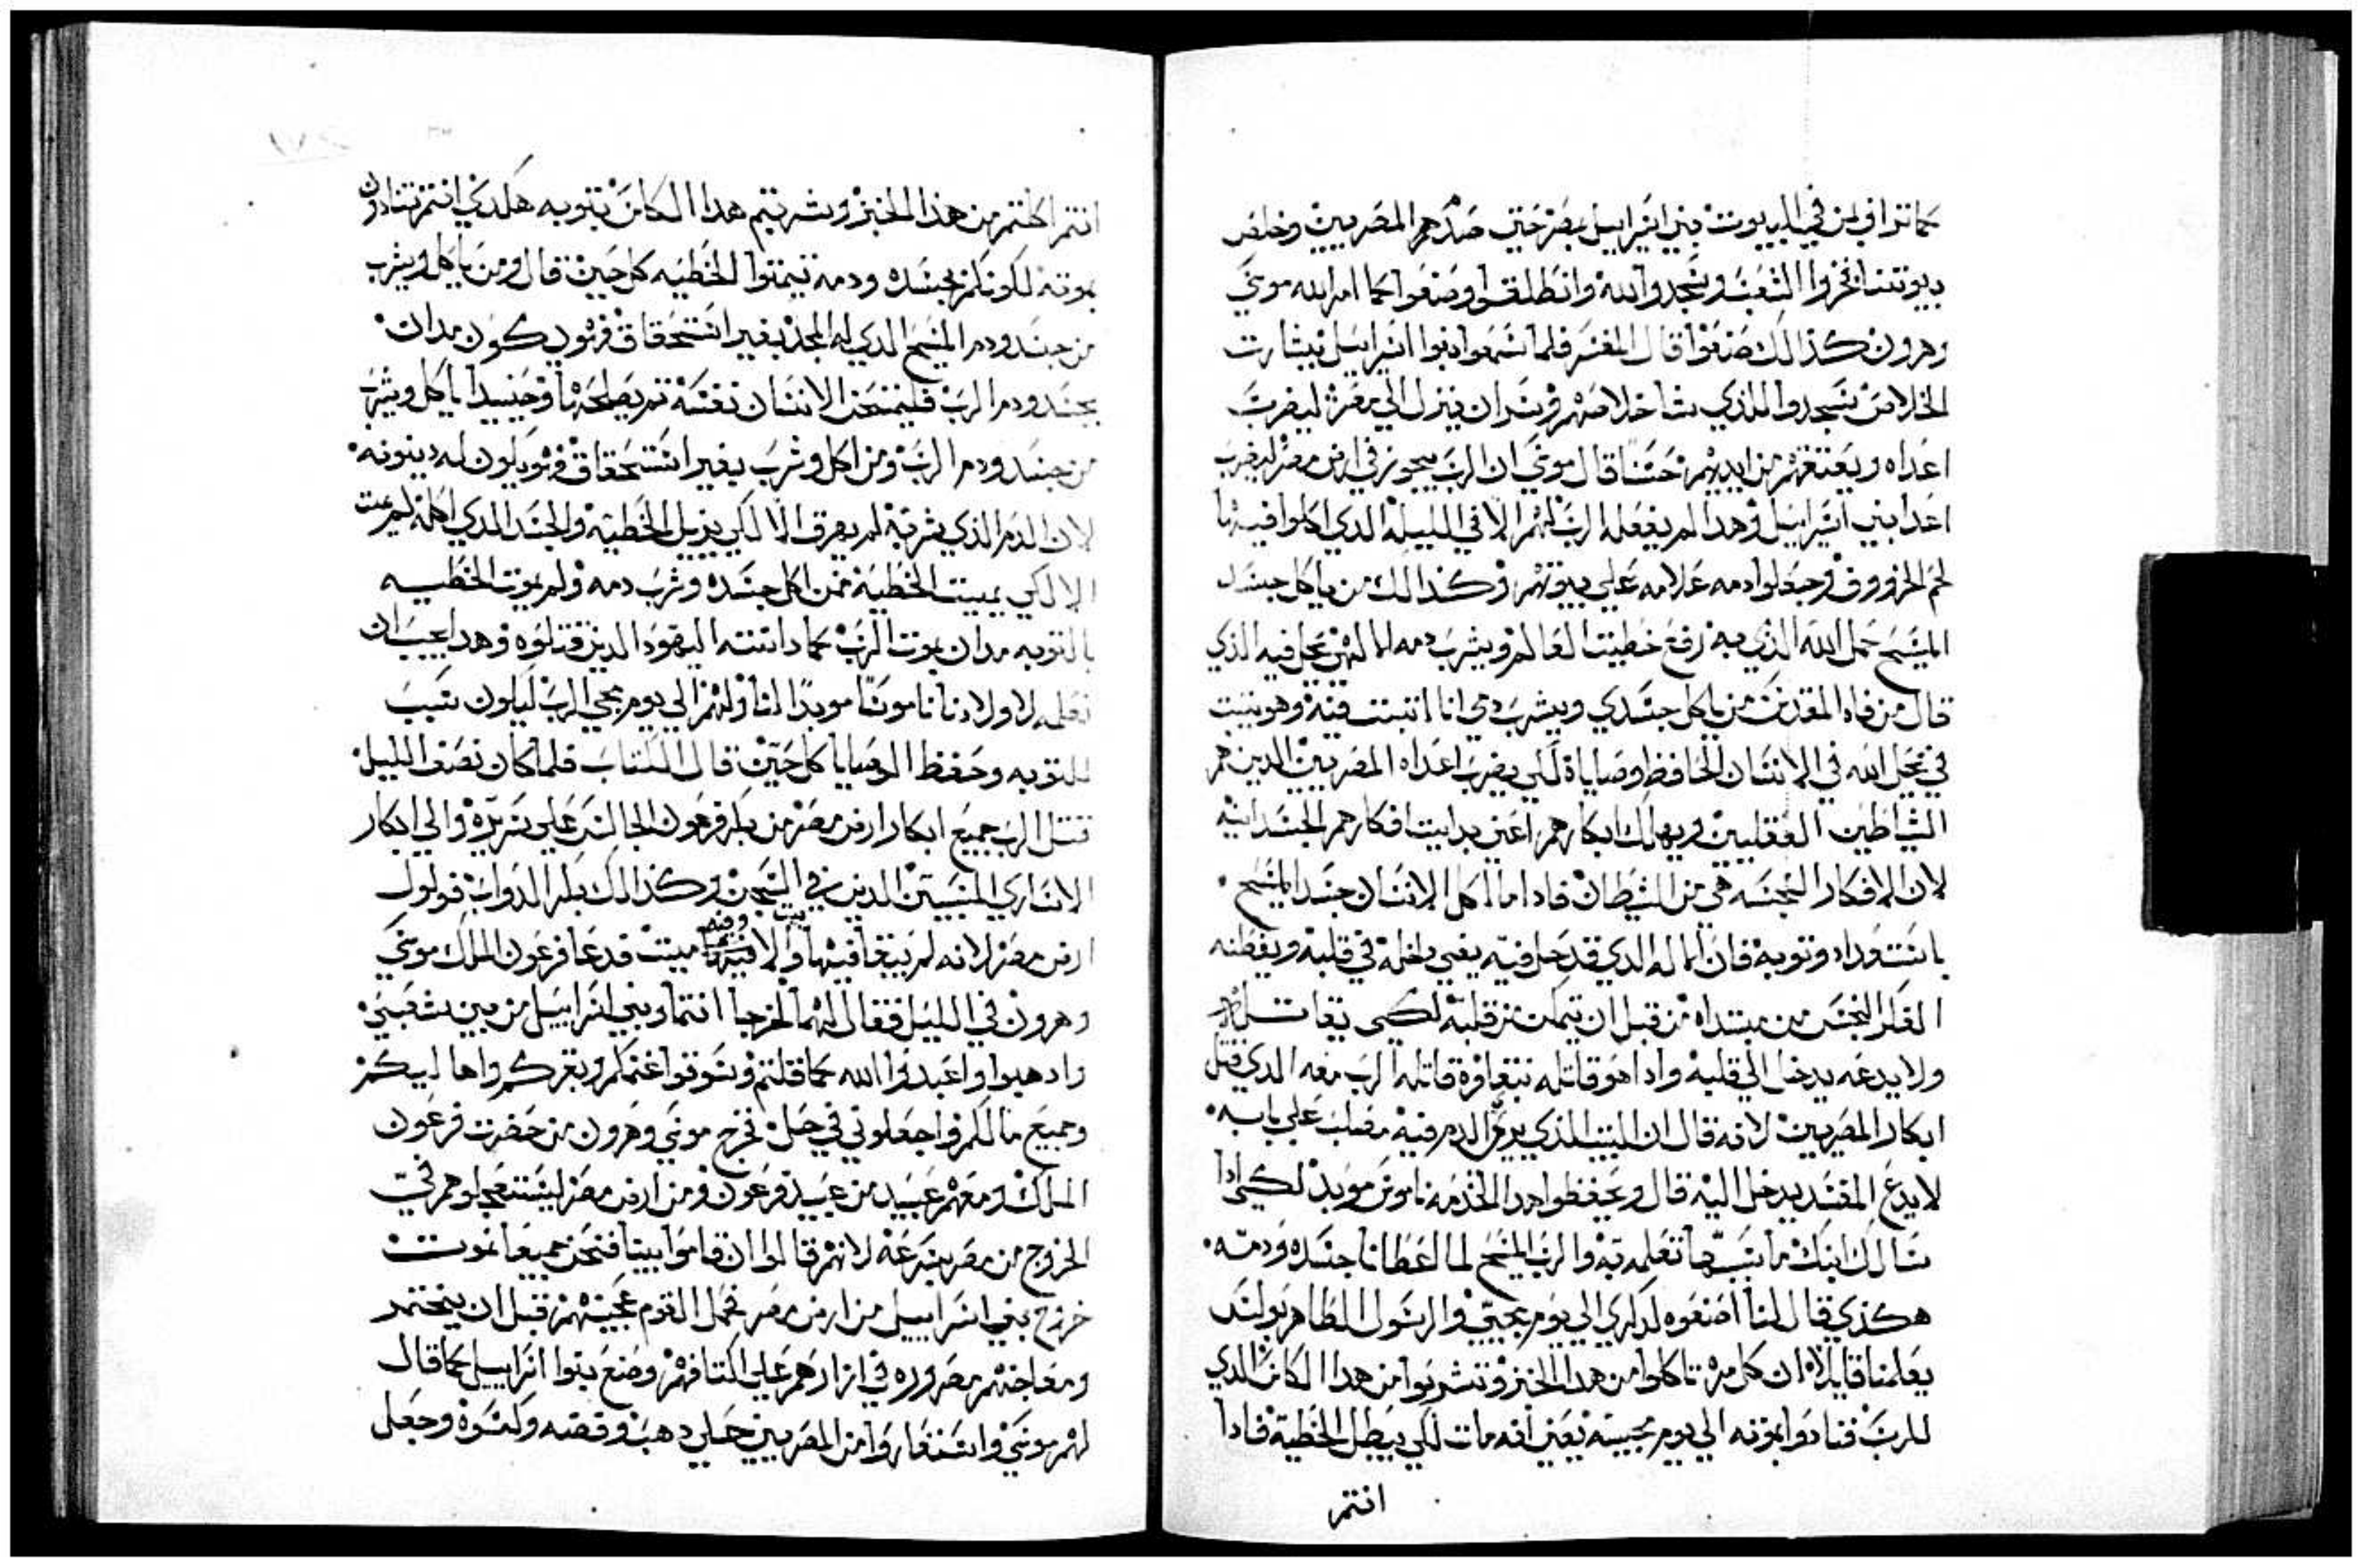 كما تراف لمن في البيوت بني اسراييل بمصر حتي صدهم المصريين وخلص
بيوتنا فخروا الشعب وسجدوا لله وانطلقوا وصنعوا كما امر الله موسي
وهرون كذالك صنعوا قال المفسر فلما سمعوا بنوا اسراييل بشارت
الخلاص سجدوا للذي شا خلاصهم وسر ان ينزل الي مصر ليضرب
اعداه ويعتقهم من ايديهم حسنا قال موسي ان الرب يجوز في ارض مصر ليضرب
اعدا بني اسراييل وهدا لم يفعله الرب لهم الا في الليله الدي اكلوا فيها
لحم الخروف وجعلوا دمه علامه علي بيوتهم وكذالك من ياكل جسد
المسيح حمل الله الذي به رفع خطيت العالم ويشرب دمه الالهي يحل فيه الذي
قال من فاه المقدس من ياكل جسدي ويشرب دمي انا اتبت فيه وهو يتبت
في يحل الله في الانسان الحافظ وصاياه لكي يضرب اعداه المصريين الدين هم
الشياطين العقليين ويهلك ابكارهم اعني بدايت افكارهم الجسدانيه
لان الافكار النجسه هي من الشيطان فادا ما اكل الانسان جسد المسيح
باستوداه وتوبه فان الاله الدي قد حل فيه يعني داخله في قلبه ويفطنه
الفكر النجس من مبتداه من قبل ان يتمكن من قلبه لكي يقاتله
ولا يدعه يدخل الي قلبه وادا هو قاتله بتغاوره قاتله الرب معه الدي قتل
ابكار المصريين لانه قال ان البيت الذي يرش الدم فيه مصلب علي بابه
لا يدع المفسد يدخل اليه قال وتحفظوا هدا الخدمه ناموس موبد لكي ادا
سالك ابنك ما سببها تعلمه به والرب المسيح لما اعطانا جسده ودمه
هكذي قال لنا اصنعوه لدكري الي يوم مجيي والرسول الطاهر بولس
يعلمنا قايلا ان كل مره تاكلوا من هدا الخبز وتشربوا من هدا الكاس الذي
للرب فنادوا بموته الي يوم مجييه يعني انه مات لكي يبطل الخطية فادا
انتم
انتم اكلتم من هذا الخبز وشربتم هدا الكاس بتوبه هكدي انتم تنادون
بموته لكونكم بجسده ودمه تيمتوا الخطيه كل حين قال ومن ياكل ويشرب
من جسد ودم المسيح الدي له المجد بغير استحقاق فهو يكون مدان
بجسد ودم الرب فليمتحن الانسان نفسه تم يصلحها وحينيدا ياكل ويشرب
من جسد ودم الرب ومن اكل وشرب بغير استحقاق فهو يكون له دينونه
لان الدم الذي شربه لم يهرق الا لكي يزيل الخطيه والجسد الدي اكله لم يمت
الا لكي يميت الخطية فمن اكل جسده وشرب دمه ولم يموت الخطيه
بالتوبه مدان بموت الرب كما دانته اليهود الدين قتلوه وهدا يجب ان
نعلمه لاولادنا ناموسا موبدا لنا ولهم الي يوم مجي الرب ليكون سبب
للتوبه وحفظ الوصايا كل حين قال الكتاب فلما كان نصف الليل
قتل الرب جميع ابكار ارض مصر من بكر فرعون الجالس علي سريره والي ابكار
الاساري المسبيين الدين في السجن وكذالك بكر الدواب فولول
ارض مصر لانه لم يبقا فيها بيت الا وفيه ميت فدعا فرعون الملك موسي
وهرون في الليل فقال لهما اخرجا انتما وبني اسراييل من بين شعبي
وادهبوا واعبدوا الله كما قلتم وسوقوا غنمكم وبقركم واهاليكم
وجميع مالكم واجعلوني في حل فخرج موسي وهرون من حضرت فرعون
الملك ومعهم عبيد من عبيد فرعون ومن ارض مصر ليستعجلوهم في
الخروج من مصر بسرعه لانهم قالوا ان قاموا بيننا فنحن جميعا نموت
خرج بني اسراييل من ارض مصر فحمل القوم عجينهم قبل ان يختمر
ومعاجنهم مصروره في ازارهم علي اكتافهم وصنع بنوا اسراييل كما قال
لهم موسي واستعاروا من المصريين حلي دهب وفضه وكسوه وجعل